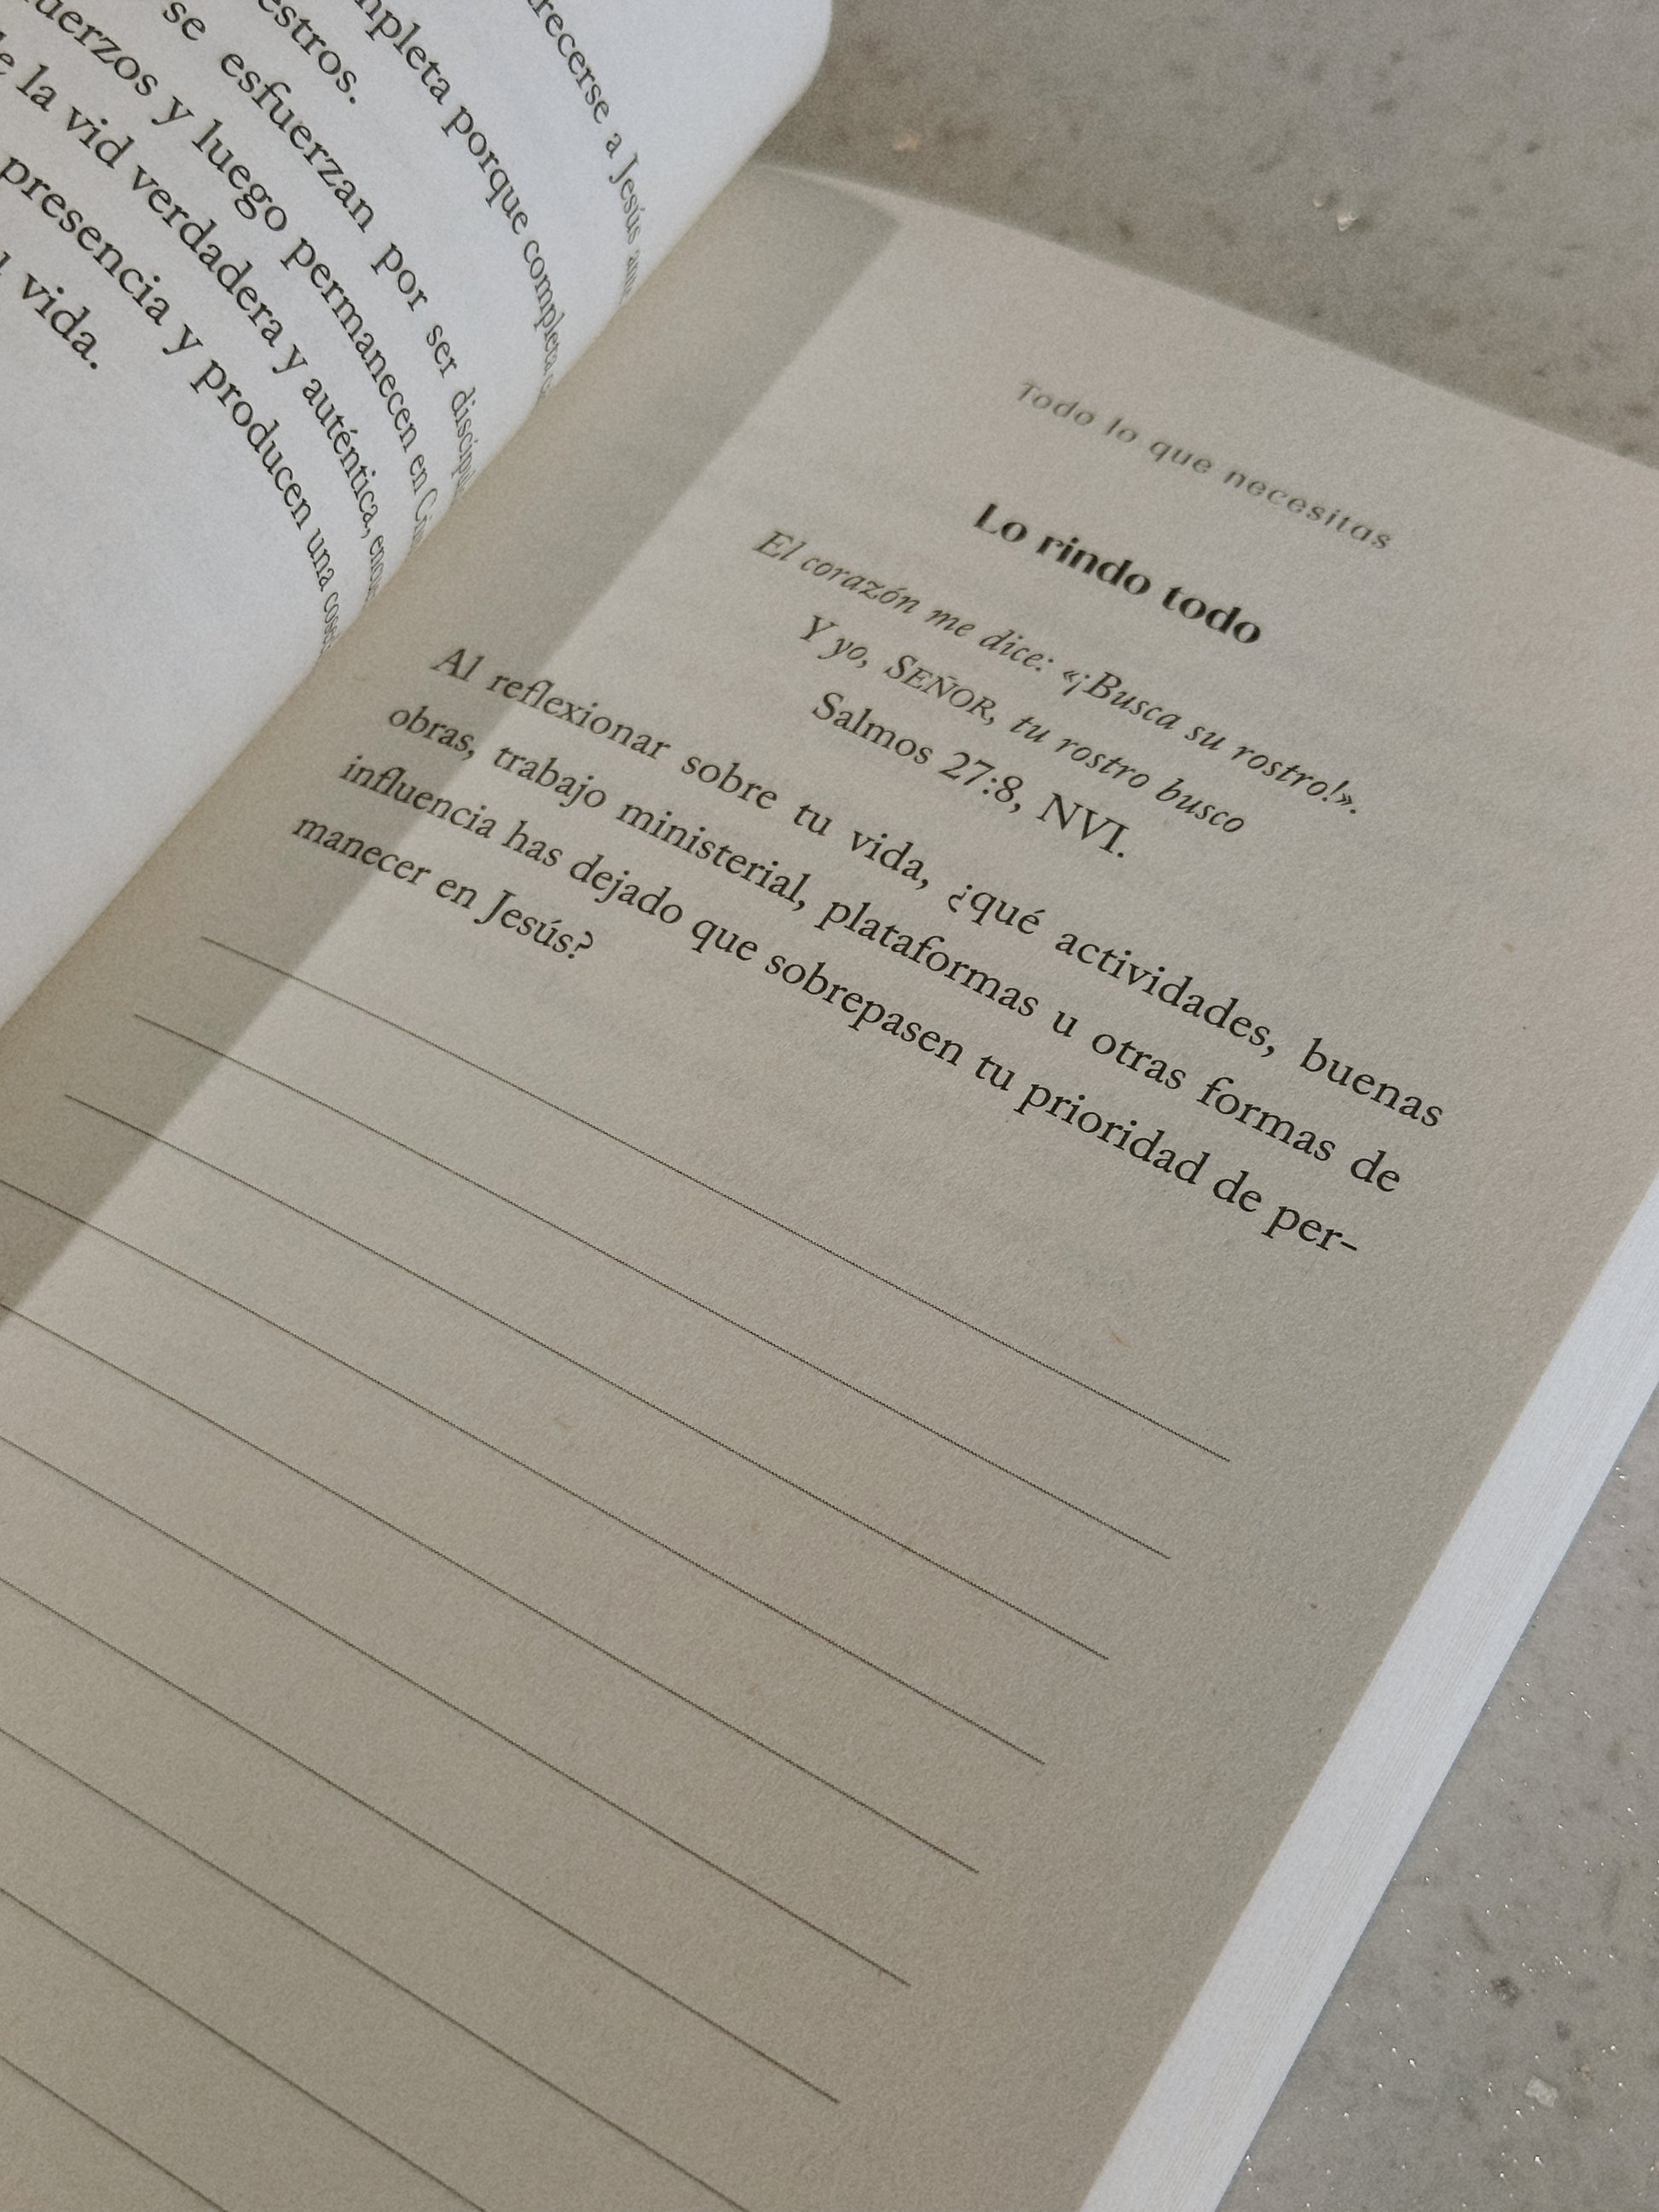 a Jesús
mpleta porque completa
estros.
se esfuerzan por ser
y luego permanecen en
la vid verdadera y auténtica,
presencia y producen una
vida.
Todo lo que necesitas
Lo rindo todo
El corazón me dice: «¡Busca su rostro!».
Y yo, SEÑOR, tu rostro busco
Salmos 27:8, NVI.
Al reflexionar sobre tu vida, ¿qué actividades, buenas
obras, trabajo ministerial, plataformas u otras formas de
influencia has dejado que sobrepasen tu prioridad de per-
manecer en Jesús?